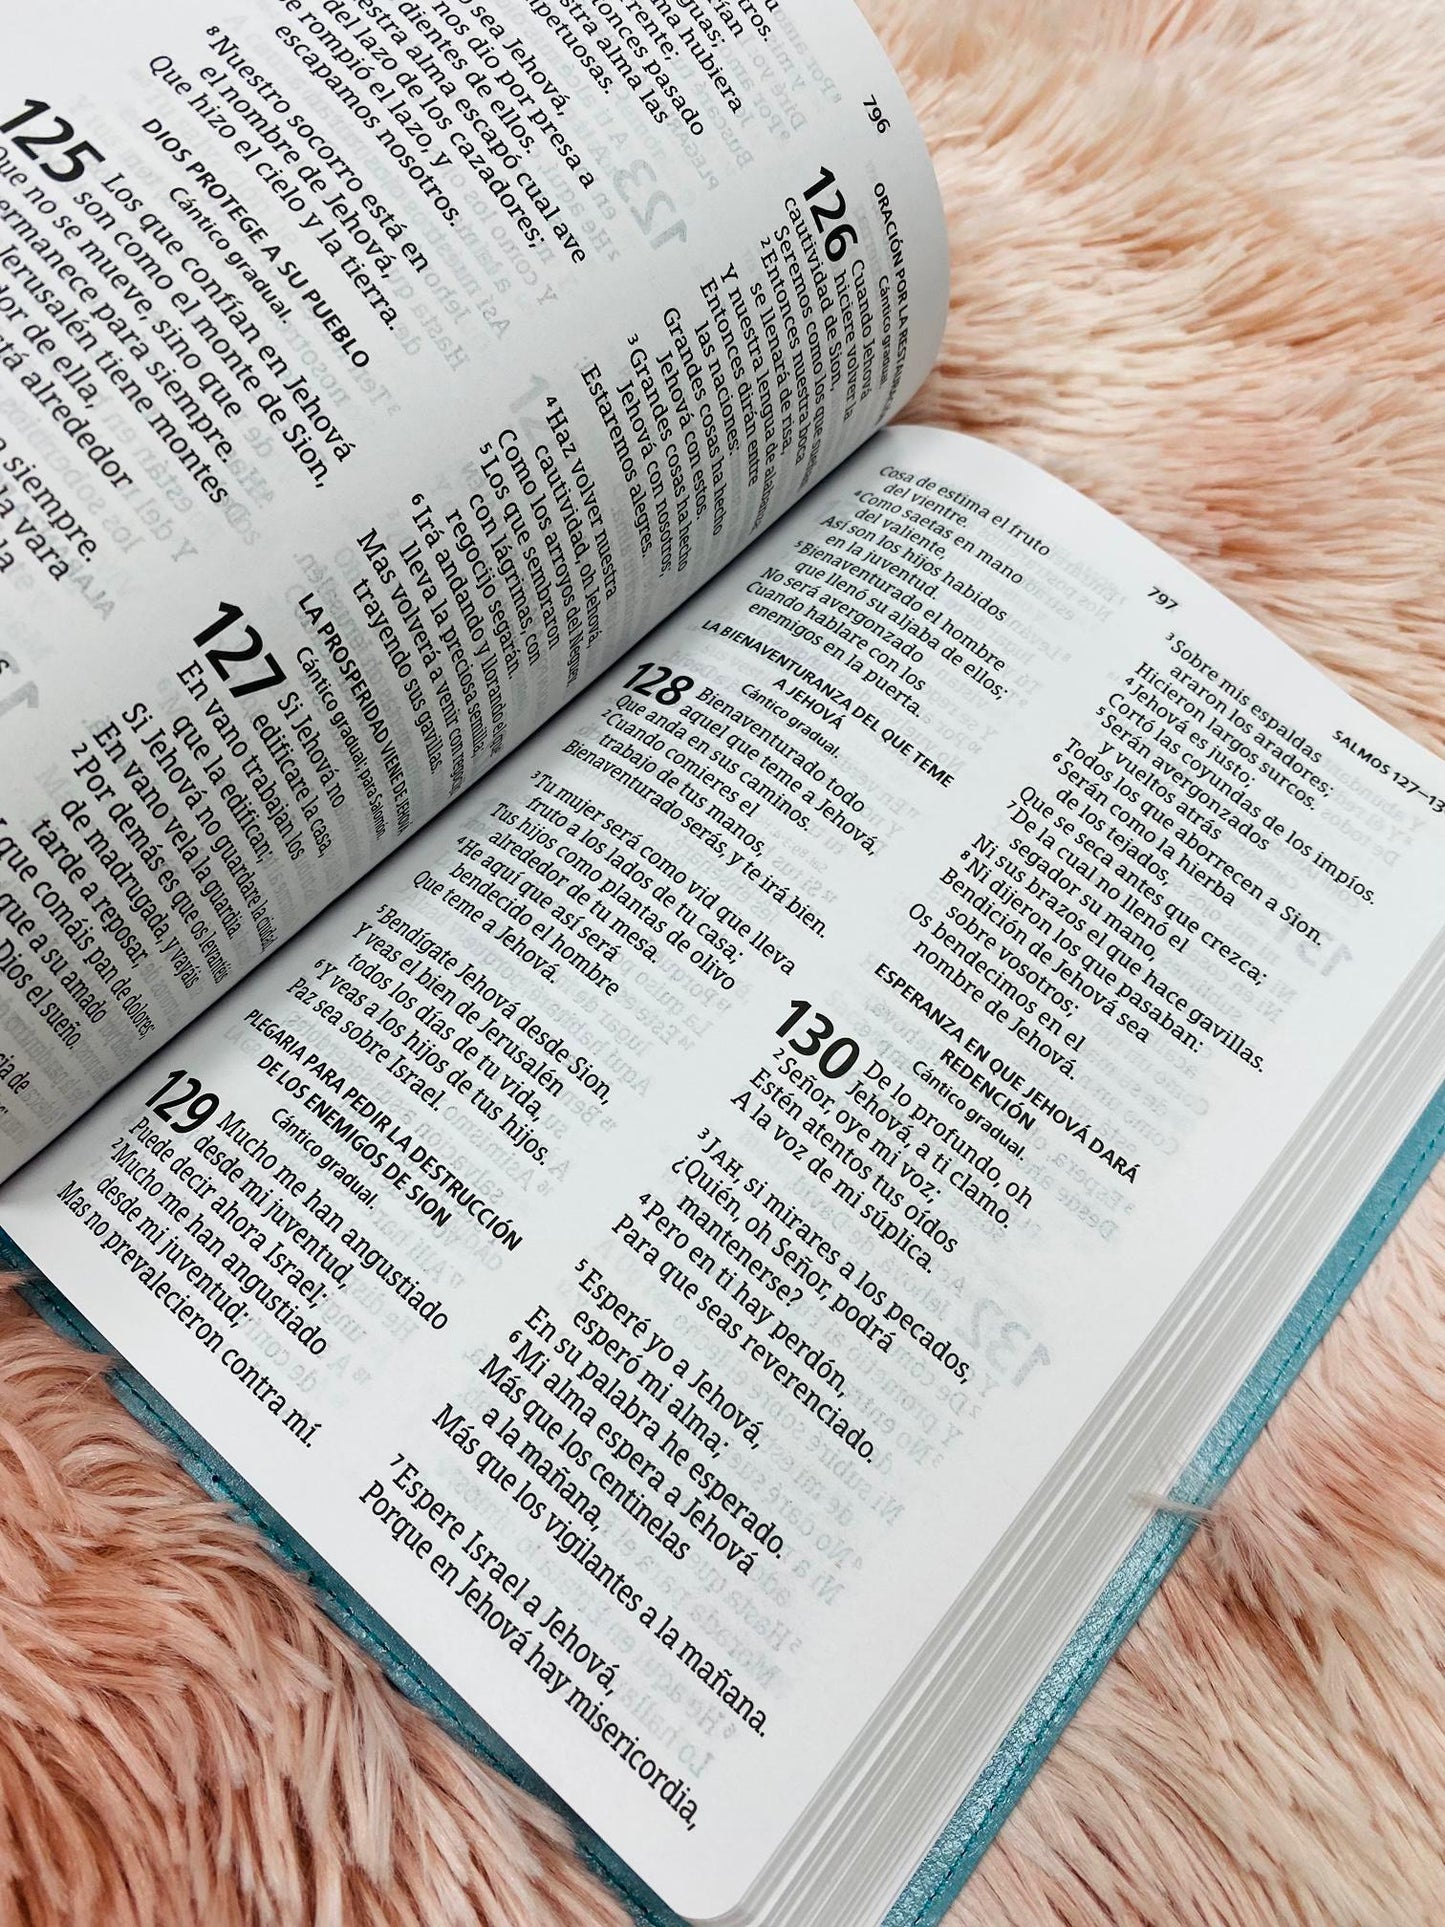 796
rrente;
guas;
ma hubiera
tonces pasado
stra alma las
petuosas.
sea Jehová,
nos dio por presa a
dientes de ellos.
estra alma escapó cual ave
del lazo de los cazadores;
se rompió el lazo, y
escapamos nosotros.
8 Nuestro socorro está en
el nombre de Jehová,
Que hizo el cielo y la tierra.
DIOS PROTEGE A SU PUEBLO
Cántico gradual.
125 Los que confían en Jehová
son como el monte de Sion,
Que no se mueve, sino que
permanece para siempre.
Jerusalén tiene montes
dor de ella,
stá alrededor
siempre.
la vara
ORACIÓN POR LA RESTAURACIÓN
Cántico gradual.
126 Cuando Jehová
hiciere volver la
cautividad de Sion,
Seremos como los que sueñan.
2 Entonces nuestra boca
se llenará de risa,
Y nuestra lengua de alabanza;
Entonces dirán entre
las naciones:
Grandes cosas ha hecho
Jehová con estos.
3 Grandes cosas ha hecho
Jehová con nosotros;
Estaremos alegres.
4 Haz volver nuestra
cautividad, oh Jehová,
Como los arroyos del Neguev.
5 Los que sembraron
con lágrimas, con
regocijo segarán.
6 Irá andando y llorando el que
lleva la preciosa semilla;
Mas volverá a venir con regocijo,
trayendo sus gavillas.
LA PROSPERIDAD VIENE DE JEHOVÁ
Cántico gradual; para Salomón.
127 Si Jehová no
edificare la casa,
En vano trabajan los
que la edifican;
Si Jehová no guardare la ciudad,
En vano vela la guardia.
2 Por demás es que os levantéis
de madrugada, y vayáis
tarde a reposar,
que comáis pan de dolores;
que a su amado
Dios el sueño.
cia de
797
SALMOS 127–13
Cosa de estima el fruto
del vientre.
4 Como saetas en mano
del valiente,
Así son los hijos habidos
en la juventud.
5 Bienaventurado el hombre
que llenó su aljaba de ellos;
No será avergonzado
Cuando hablare con los
enemigos en la puerta.
LA BIENAVENTURANZA DEL QUE TEME
A JEHOVÁ
Cántico gradual.
128 Bienaventurado todo
aquel que teme a Jehová,
Que anda en sus caminos.
2 Cuando comieres el
trabajo de tus manos,
Bienaventurado serás, y te irá bien.
3 Tu mujer será como vid que lleva
fruto a los lados de tu casa;
Tus hijos como plantas de olivo
alrededor de tu mesa.
4 He aquí que así será
bendecido el hombre
Que teme a Jehová.
5 Bendígate Jehová desde Sion,
Y veas el bien de Jerusalén
todos los días de tu vida,
6 Y veas a los hijos de tus hijos.
Paz sea sobre Israel.
PLEGARIA PARA PEDIR LA DESTRUCCIÓN
DE LOS ENEMIGOS DE SION
Cántico gradual.
129 Mucho me han angustiado
desde mi juventud,
Puede decir ahora Israel;
2 Mucho me han angustiado
desde mi juventud;
Mas no prevalecieron contra mí.
3 Sobre mis espaldas
araron los aradores;
Hicieron largos surcos.
4 Jehová es justo;
Cortó las coyundas de los impíos.
5 Serán avergonzados
y vueltos atrás
Todos los que aborrecen a Sion.
6 Serán como la hierba
de los tejados,
Que se seca antes que crezca;
7 De la cual no llenó el
segador su mano,
Ni sus brazos el que hace gavillas.
8 Ni dijeron los que pasaban:
Bendición de Jehová sea
sobre vosotros;
Os bendecimos en el
nombre de Jehová.
ESPERANZA EN QUE JEHOVÁ DARÁ
REDENCIÓN
Cántico gradual.
130 De lo profundo, oh
Jehová, a ti clamo.
2 Señor, oye mi voz;
Estén atentos tus oídos
A la voz de mi súplica.
3 JAH, si mirares a los pecados,
¿Quién, oh Señor, podrá
mantenerse?
4 Pero en ti hay perdón,
Para que seas reverenciado.
5 Esperé yo a Jehová,
esperó mi alma;
En su palabra he esperado.
6 Mi alma espera a Jehová
Más que los centinelas
a la mañana,
Más que los vigilantes a la mañana.
7 Espere Israel a Jehová,
Porque en Jehová hay misericordia,